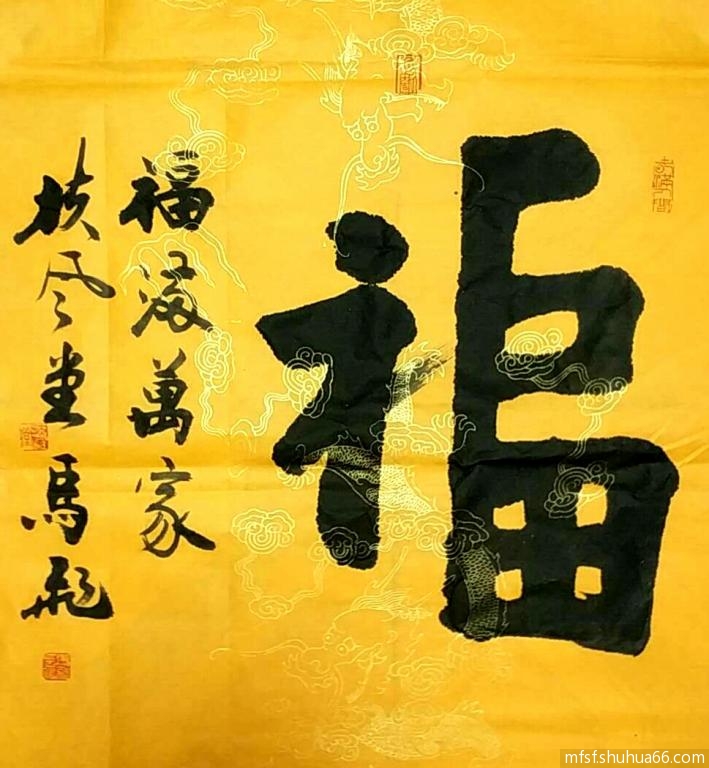 福
福萬家
扶风堂馬飛
mfsf.shuhua66.com